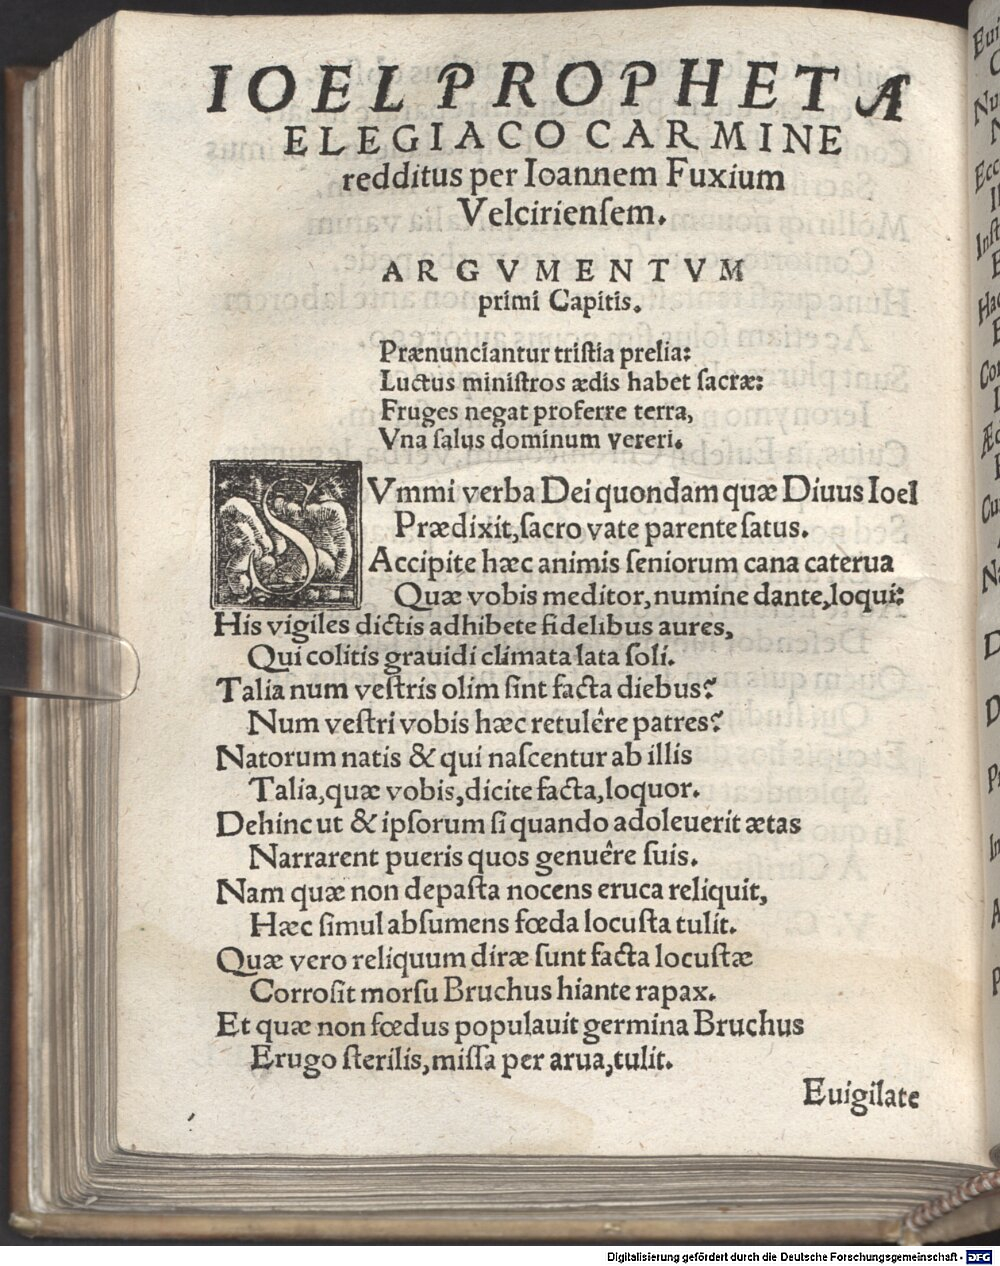 IOEL PROPHETA
ELEGIACO CARMINE
redditus per Ioannem Fuxium
Velcirienſem.
ARGVMENTVM
primi Capitis.
Prænunciantur triſtia prelia:
Luctus miniſtros ædis habet ſacræ:
Fruges negat proferre terra,
Vna ſalus dominum vereri.
SVmmi verba Dei quondam quæ Diuus Ioel
Prædixit, ſacro vate parente ſatus.
Accipite hæc animis ſeniorum cana caterua
Quæ vobis meditor, numine dante, loqui:
His vigiles dictis adhibete fidelibus aures,
Qui colitis grauidi climata lata ſoli.
Talia num veſtris olim ſint facta diebus?
Num veſtri vobis hæc retulêre patres?
Natorum natis & qui naſcentur ab illis
Talia, quæ vobis, dicite facta, loquor.
Dehinc ut & ipſorum ſi quando adoleuerit ætas
Narrarent pueris quos genuêre ſuis.
Nam quæ non depaſta nocens eruca reliquit,
Hæc ſimul abſumens fœda locuſta tulit.
Quæ vero reliquum diræ ſunt facta locuſtæ
Corroſit morſu Bruchus hiante rapax.
Et quæ non fœdus populauit germina Bruchus
Erugo ſterilis, miſſa per arua, tulit.
Euigilate
Digitalisierung gefördert durch die Deutsche Forschungsgemeinschaft - DFG